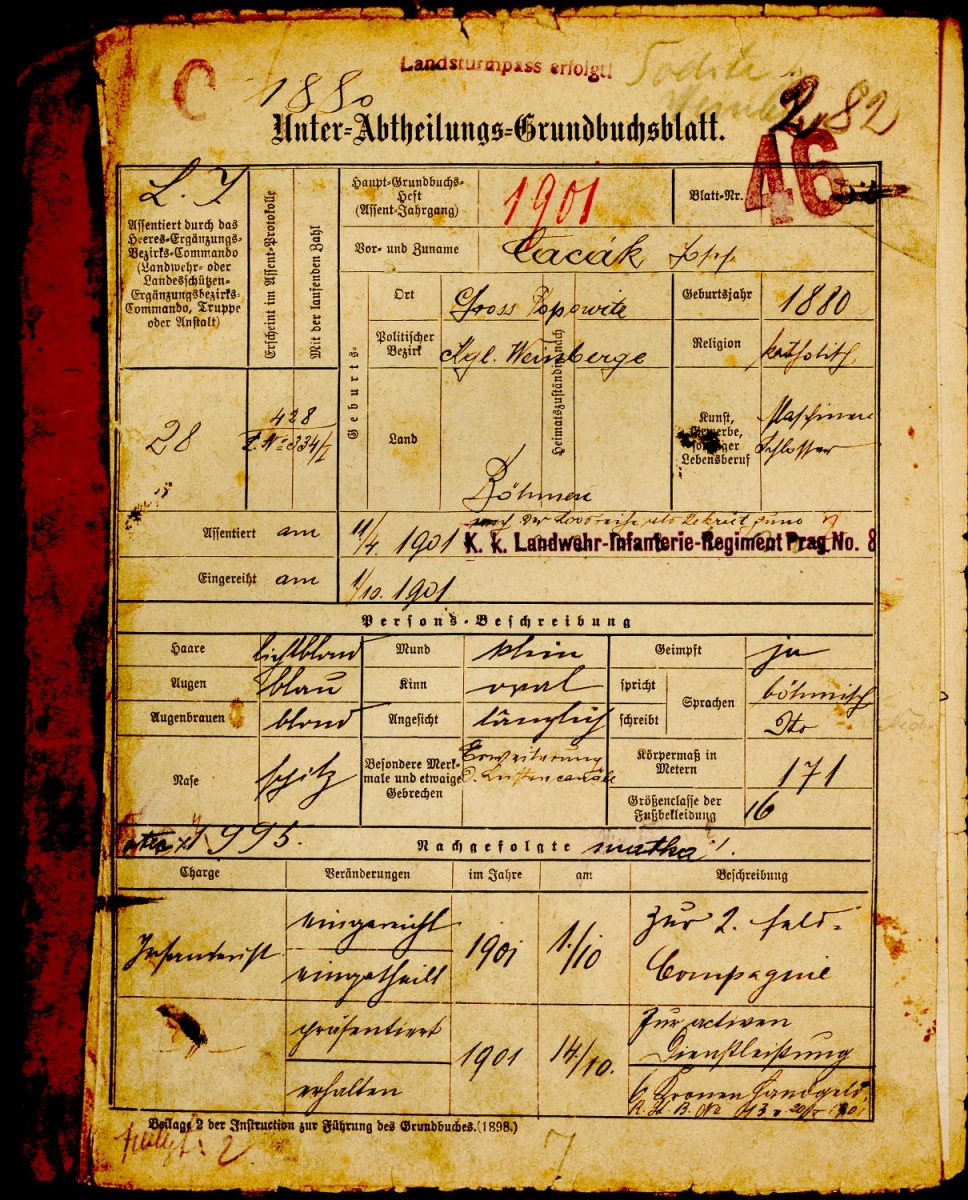 C
Landsturmpass erfolgt!
1880
2, 82
Unter-Abtheilungs-Grundbuchsblatt.
46
L. I
Assentiert durch das
Heeres-Ergänzungs-
Bezirks-Commando
(Landwehr- oder
Landesschützen-
Ergänzungsbezirks-
Commando, Truppe
oder Anstalt)
Erscheint im Assent-Protokolle
Mit der laufenden Zahl
Haupt-Grundbuchs-
Heft
(Assent-Jahrgang)
1901
Blatt-Nr.
Vor- und Zuname
Cacák Josef
Geburts-
Ort
Gross Popowitz
Geburtsjahr
1880
Politischer
Bezirk
Kgl. Weinberge
Heimatszuständig nach
Religion
katholisch
28
428
334/I
Land
Böhmen
Kunst,
Gewerbe,
sonstiger
Lebensberuf
Maschinen
Schlosser
Assentiert am
11/4. 1901
nach der Losreihe als Rekrut zum
K. k. Landwehr-Infanterie-Regiment Prag No. 8
Eingereiht am
1/10. 1901
Persons-Beschreibung
Haare lichtblond Mund klein Geimpft ja
Augen blau Kinn oval spricht Sprachen böhmisch
Augenbrauen blond Angesicht länglich schreibt Dto
Nase spitz
Besondere Merk-
male und etwaige
Gebrechen
Erweiterung
d. Leistencanäle
Körpermaß in
Metern
171
Größenclasse der
Fußbekleidung
16
1995.
Nachgefolgte
Charge Veränderungen im Jahre am Beschreibung
Infanterist
eingereiht
eingetheilt
1901 1./10
Zur 2. Feld-
Compagnie
präsentiert
1901 14/10.
Zur activen
Dienstleistung
erhalten
6 Kronen Handgeld
Beilage 2 der Instruction zur Führung des Grundbuches. (1898.)
7